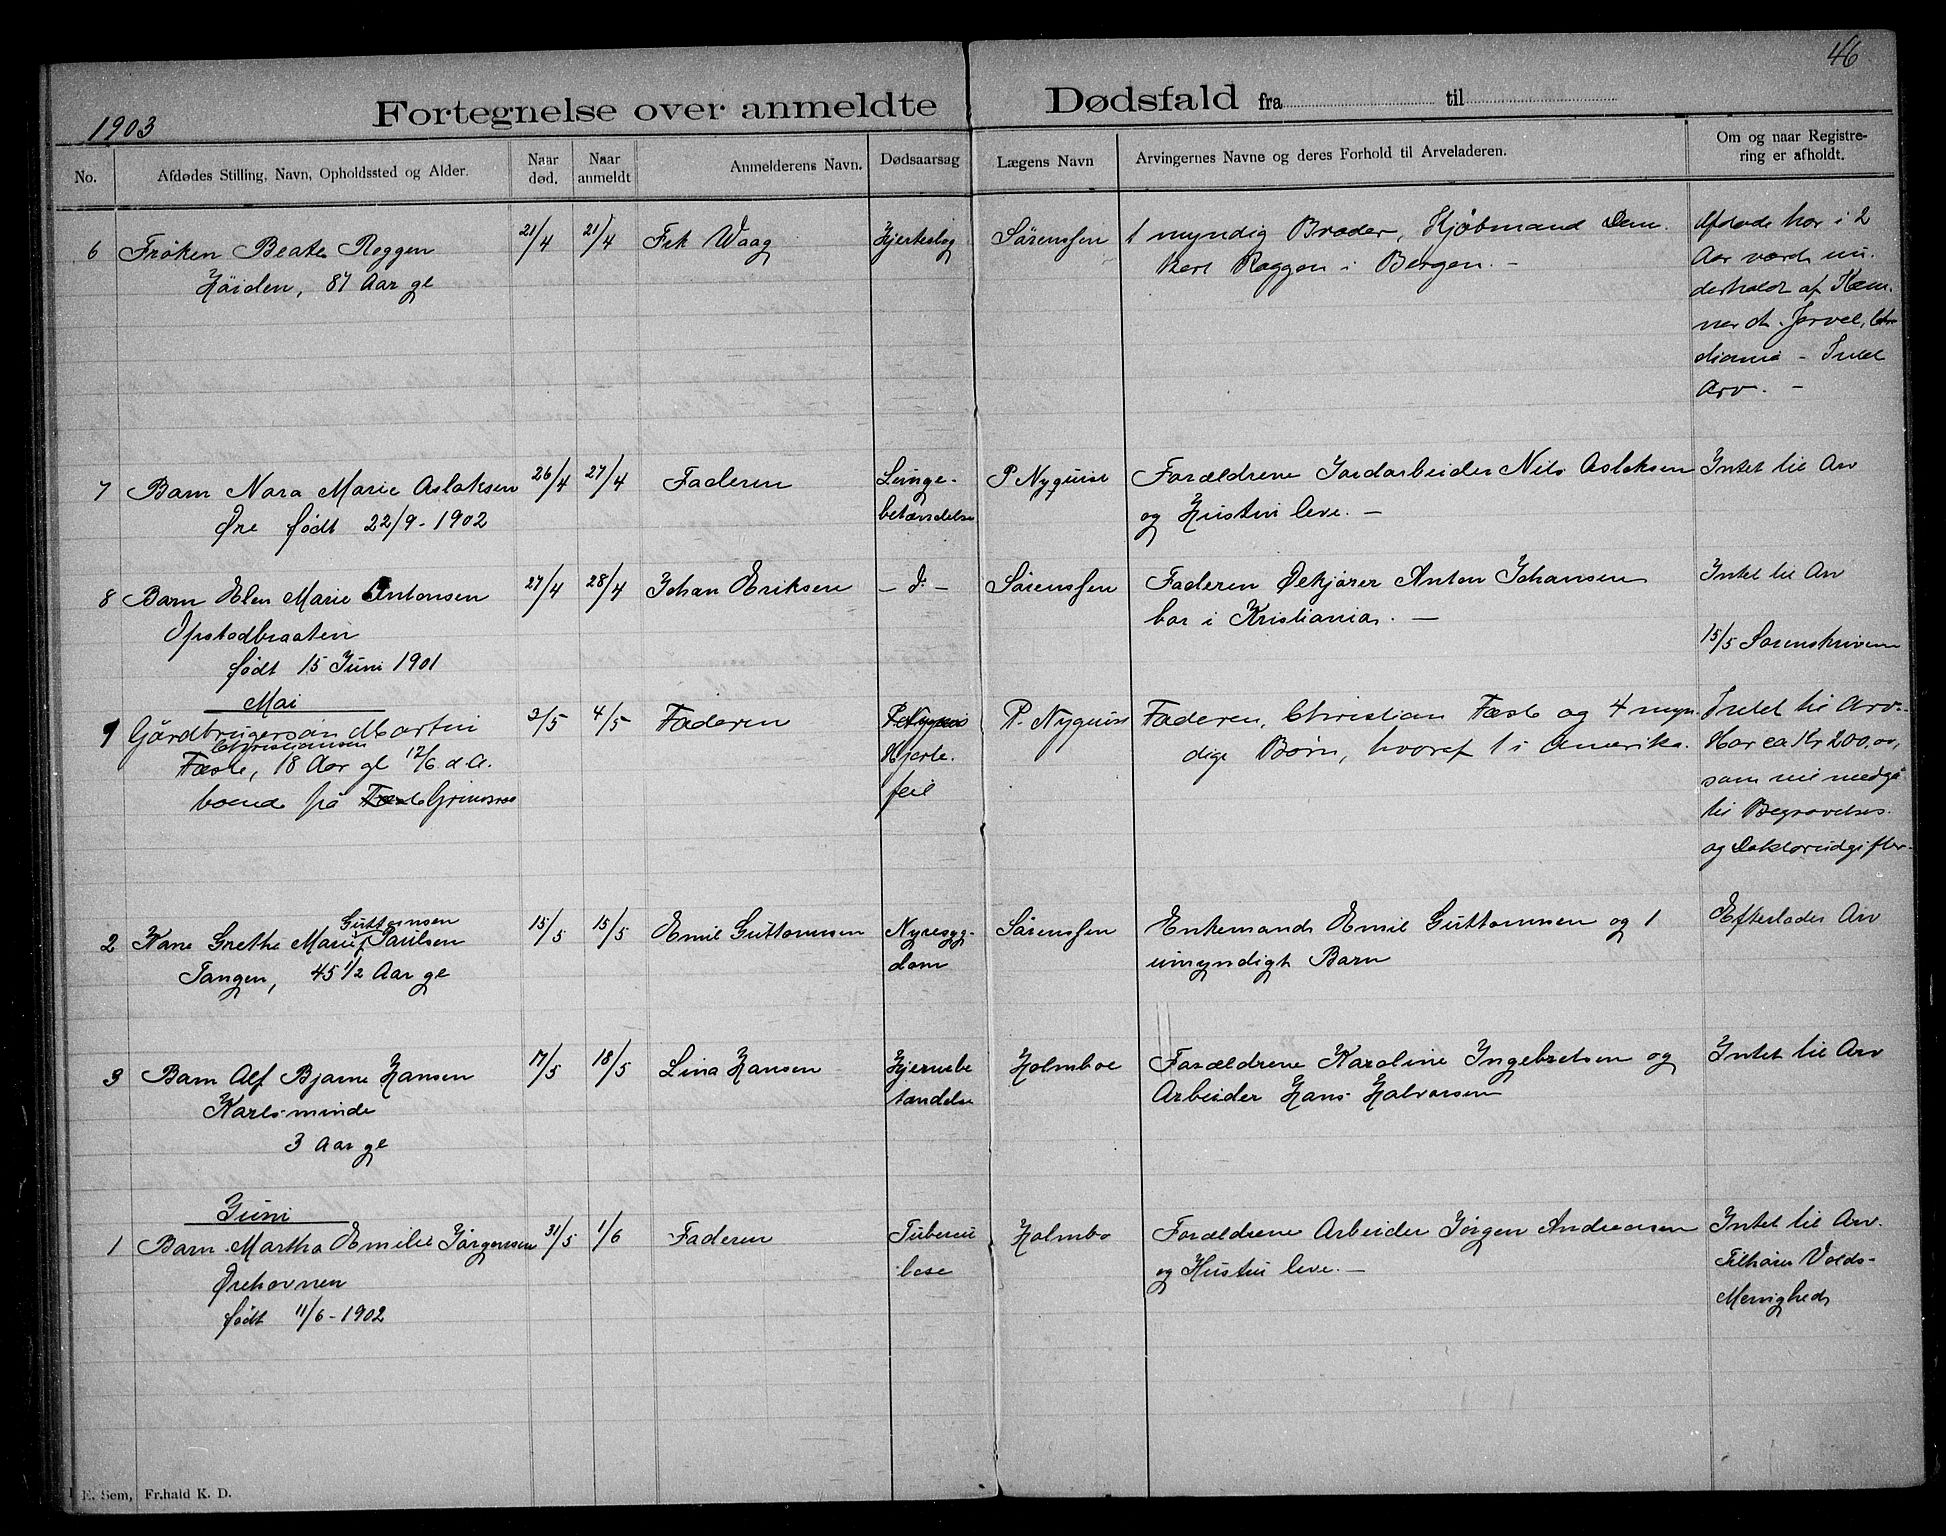 46
Fortegnelse over anmeldte Dødsfald fra til
1903
No. Afdødes Stilling, Navn, Opholdssted og Alder. Naar død. Naar anmeldt Anmelderens Navn. Dødsaarsag Lægens Navn Arvingernes Navne og deres Forhold til Arveladeren. Om og naar Registrering er afholdt.
6 Frøken Beate Roggen 21/4 21/4 Frk Waag Hjerteslag Sørenssen 1 myndig Broder, Kjøbmand Dem- Afdøde har i 2
Høiden, 87 Aar gl kert Roggen i Bergen. - Aar været un-
derholdt af Kæm-
ner
- Intet
Arv. -
7 Barn Nora Marie Aslaksen 26/4 27/4 Faderen Lunge- P Nyquist Forældrene Jordarbeider Nils Aslaksen Intet til Arv
Øre født 22/9-1902 betændelse og Hustru leve. -
8 Barn Elen Marie Antonsen 27/4 28/4 Johan Eriksen - d - Sørenssen Faderen Ølkjører Anton Johansen Intet til Arv
Opstadbraaten bor i Kristiania. -
født 15 Juni 1901 15/5 Sorenskriveren
Mai
9 Gårdbrugersøn Martin 3/5 4/5 Faderen P. Nyquist P. Nyquist Faderen, Christian Fæste og 4 myn- Intet til Arv.
Christiansen
Fæste, 18 Aar gl 12/6 d. A. Hjerte- dige Børn, hvoraf 1 i Amerika. Har ca Kr 200,00,
boende på Fæste Grimsrød feil som vil medgå
til Begravelses-
og Doktorudgifter-
Guttormsen
2 Kone Grethe Marie f Paulsen 15/5 15/5 Emil Guttormsen Nyresyg- Sørenssen Enkemand Emil Guttormsen og 1 Efterlader Arv
Tangen, 45 1/2 Aar gl dom umyndigt Barn
3 Barn Alf Bjarne Hansen 17/5 18/5 Lina Hansen Hjernebe Holmboe Forældrene Karoline Ingebretsen og Intet til Arv
Karlsminde tændelse Arbeider Hans Halvorsen
3 Aar gl
Juni
1 Barn Martha Emilie Jørgensen 31/5 1/6 Faderen Tubercu Holmbo Forældrene Arbeider Jørgen Andreassen Intet til Arv.
Ørehavnen lose og Hustru leve. - Tilhører Valds-
født 11/6-1902 Menighed
E. Sem, Fr.hald K. D.